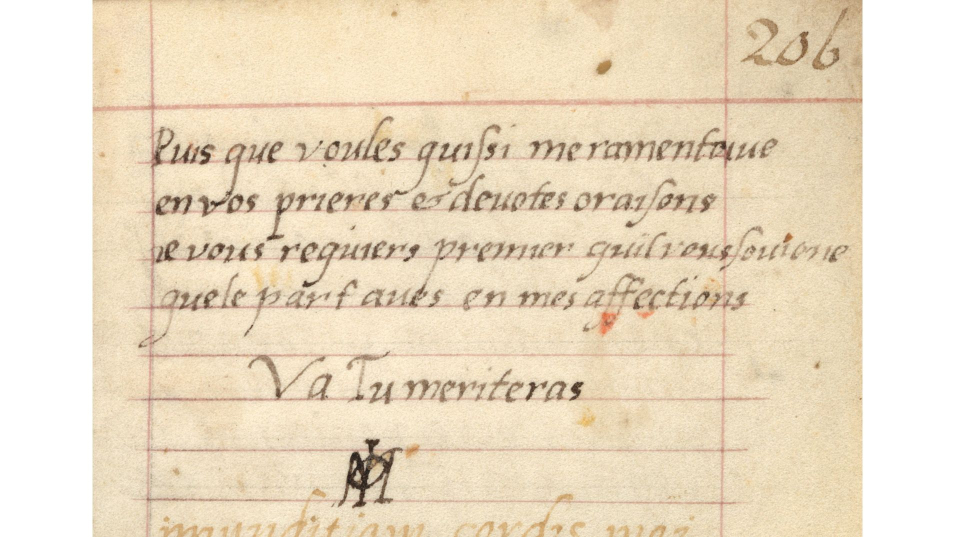 206
Puis que voules quissi me ramenteuue
en vos prieres & deuotes oraisons
ie vous requiers premier quil vous souuiene
quele part aues en mes affections
Va Tu meriteras
immunditiam cordis mei